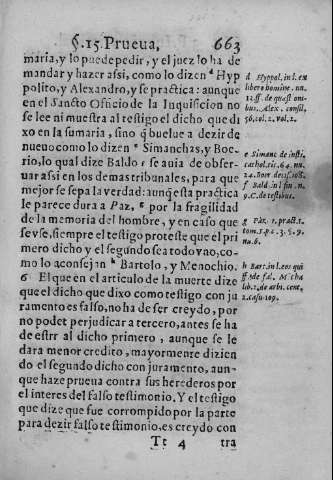 §. 15. Prueua, 663
maria, y lo puede pedir, y el juez lo ha de
mandar y hazer assi, como lo dizen d Hyp
polito, y Alexandro, y se practica: aunque
en el Sancto Officio de la Inquisicion no
se lee ni muestra al testigo el dicho que di
xo en la sumaria, sino q̃ buelue a dezir de
nueuo como lo dizen e Simanchas, y Boc-
rio, lo qual dize Baldo f se auia de obser-
uar assi en los demas tribunales, para que
mejor se sepa la verdad: aunq̃ esta practica
le parece dura a Paz, g por la fragilidad
de la memoria del hombre, y en caso que
se vse, siempre el testigo proteste que el pri
mero dicho y el segundo sea todo vno, co-
mo lo aconsejan h Bartolo, y Menochio.
6 El que en el articulo de la muerte dize
que el dicho que dixo como testigo con ju
ramento es falso, no ha de ser creydo, por
no podet perjudicar a tercero, antes se ha
de estar al dicho primero, aunque se le
dara menor credito, mayormente dizien
do el segundo dicho con juramento, aun-
que haze prueua contra sus herederos por
el interes del falso testimonio. Y el testigo
que dize que fue corrompido por la parte
para dezir falso testimonio, es creydo con
Tt 4 tra
d Hyppol. in l. ex
libero homine. nu.
12. ff. de quæst oni-
bus. Alex. consil.
56. col. 2. vol. 2.
e Simanc de insti.
cathol. tit. 64. nu.
f Bald in l fin n.
9. C. de testibus.
g Paz. 1. pract. 1.
tom. 5. p. c. 3. §. 9.
nu. 6.
h Bart. in l. eos qui
lib. 2. de arbi. cent.
2. casu 109.